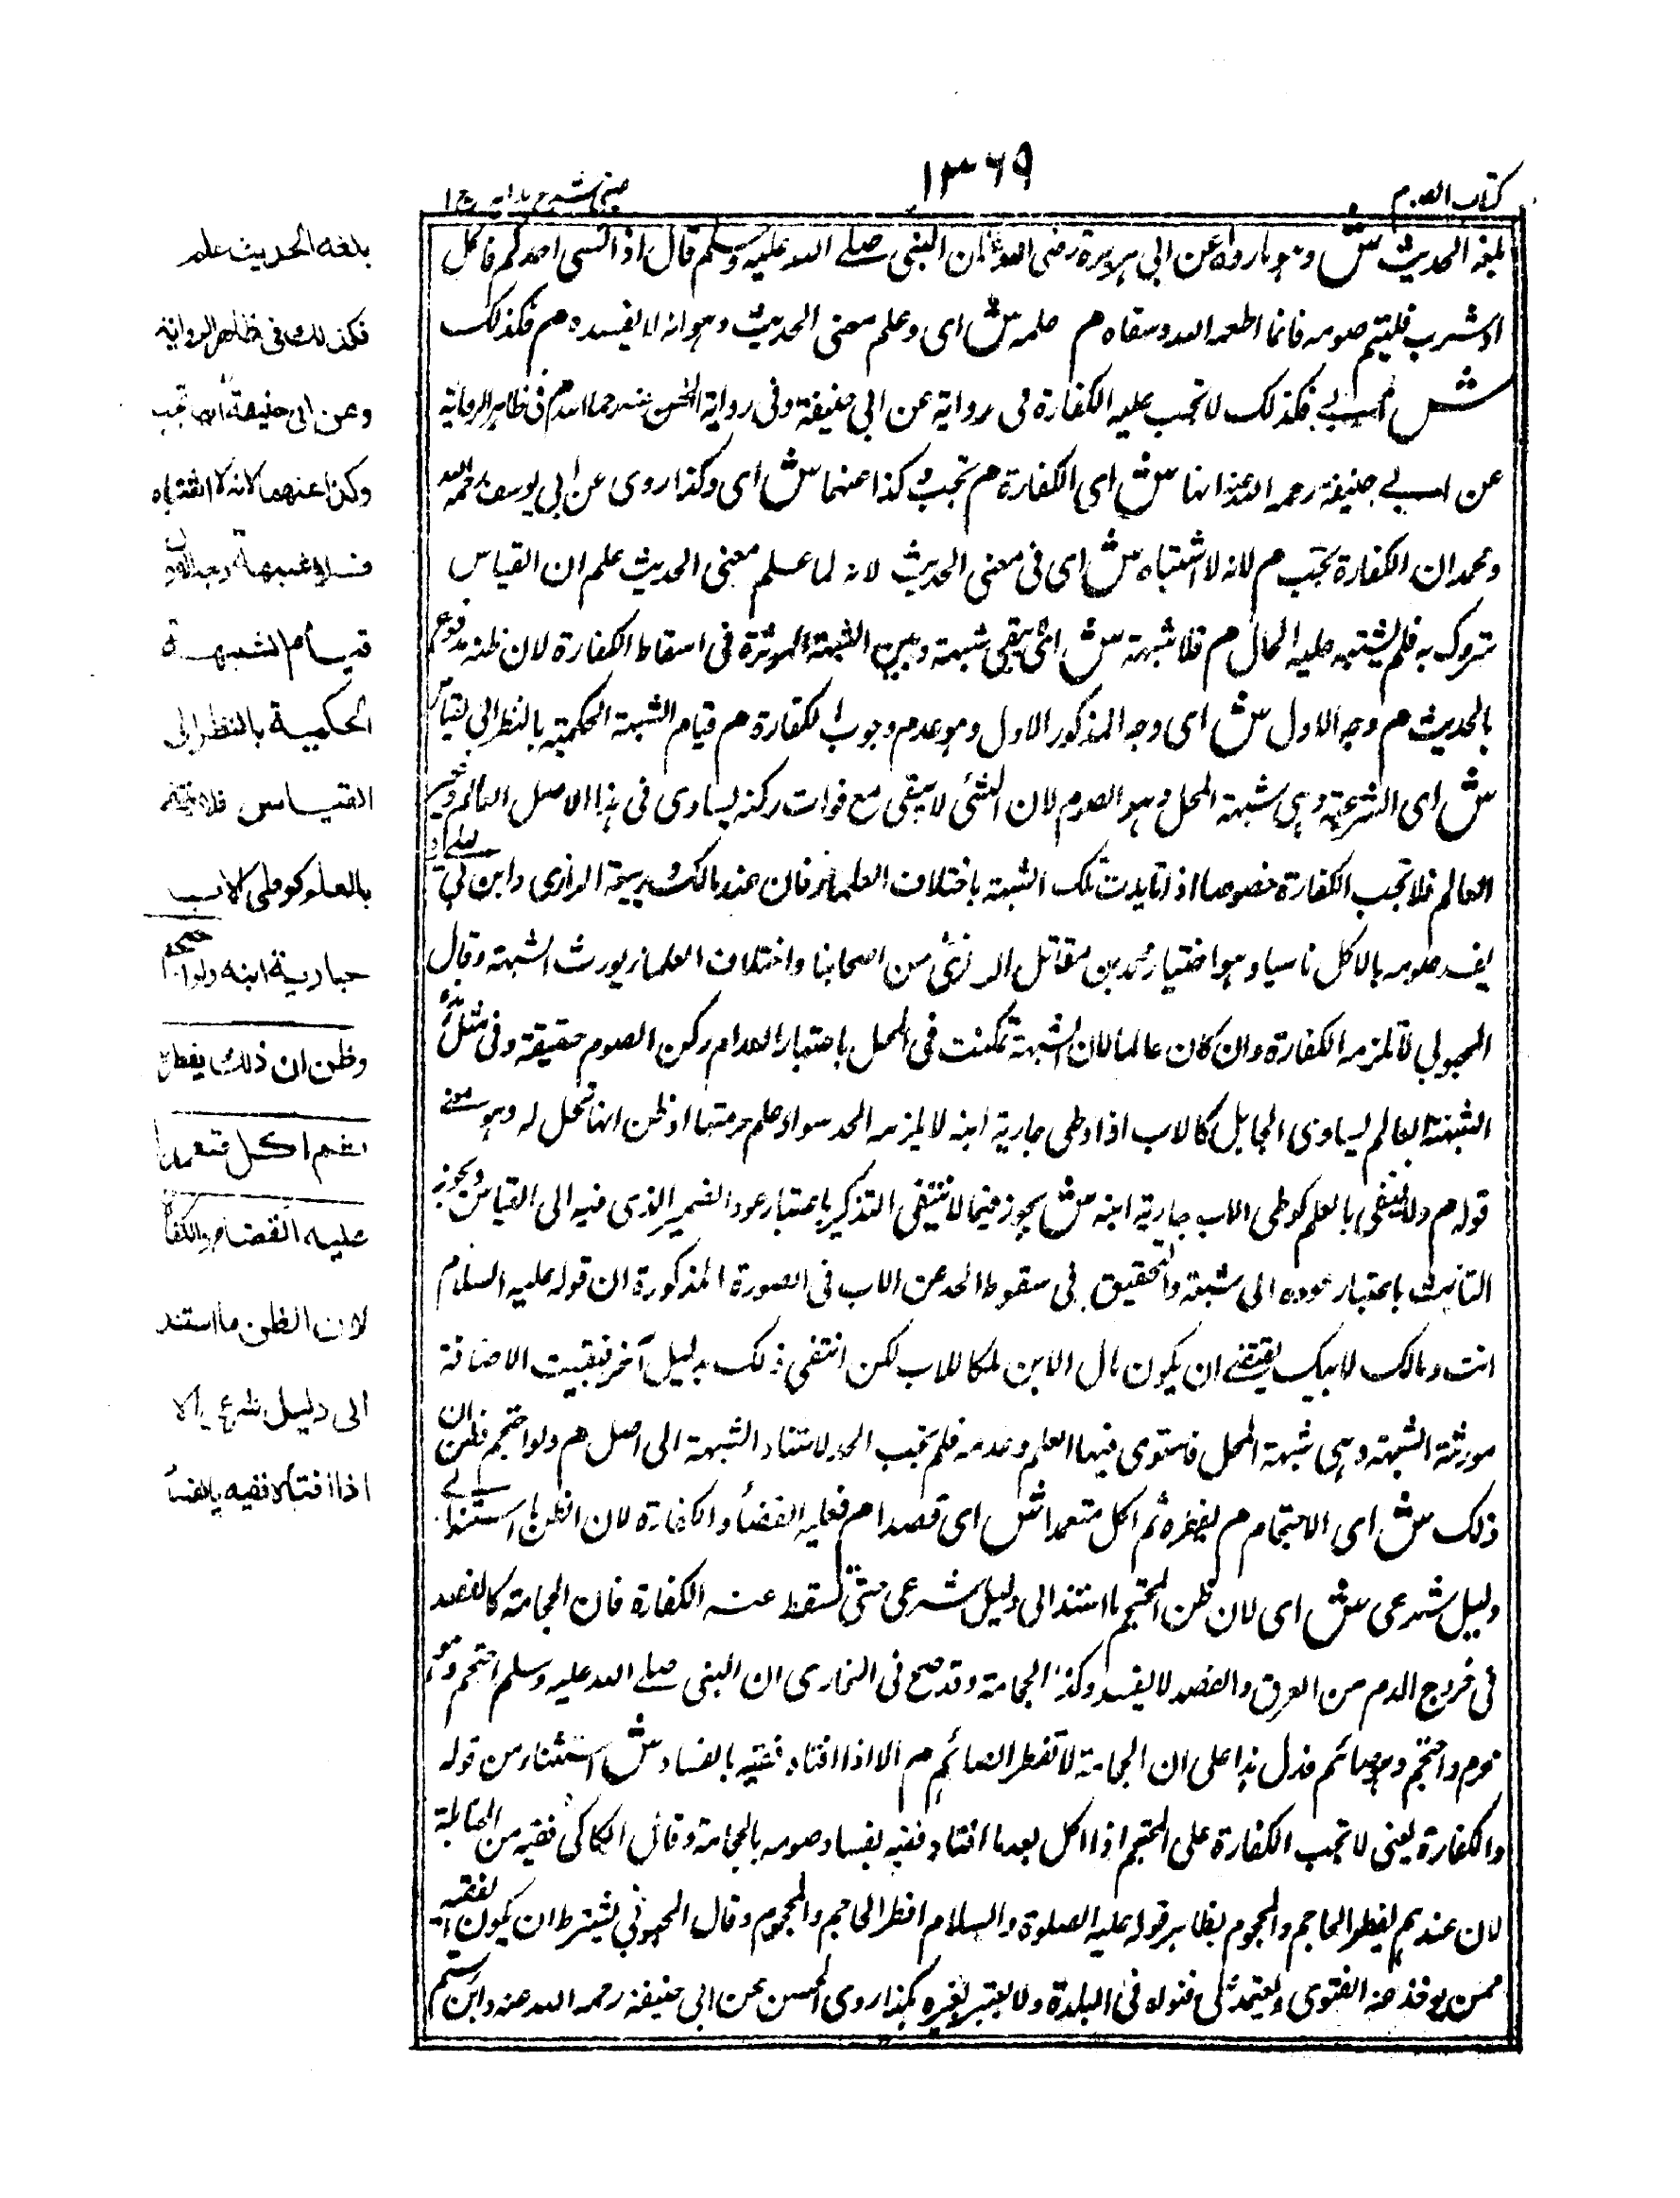 كتاب الصوم
١٣٦٩
عينى شرح هدايه ج ١
بلغه الحديث ش وهو ما رواه عن ابى هريرة رضى الله عنه ان النبى صلے الله عليه وسلم قال اذا نسى احدكم فاكل
او شرب فليتم صومه فانما اطعمه الله وسقاه م علمه ش اى وعلم معنى الحديث وهو انه لا يفسده م فكذلك
ش اے فكذلك لا تجب عليه الكفارة فى رواية عن ابى حنيفة وفى رواية الحسن عنه رحمها الله م فى ظاهر الرواية
عن ابے حنيفة رحمه الله عنه انها ش اى الكفارة م تجب وكذا عنهما ش اى وكذا روى عن ابى يوسف رحمه الله
ومحمد ان الكفارة تجب م لانه لا اشتباه ش اى فى معنى الحديث لانه لما علم معنى الحديث علم ان القياس
متروك به فلم يشتبه عليه الحال م فلا شبهة ش اى يبقى شبهة وبين الشبهة الموثرة فى اسقاط الكفارة لان ظنه مدفوع
بالحديث م وجه الاول ش اى وجه المذكور الاول وهو عدم وجوب الكفارة م قيام الشبهة الحكمية بالنظر الى القياس
ش اى الشرعية وهى شبهة المحل وهو الصوم لان الشئى لا يبقى مع فوات ركنه يساوى فى هذا الاصل العالم وغير
العالم فلا تجب الكفارة خصوصا اذا تايدت تلك الشبهة باختلاف العلماء فان عند مالك وربيعة الرازى وابن ابى ليلے
يفسد صومه بالاكل ناسيا وهو اختيار محمد بن مقاتل الرازى من اصحابنا واختلاف العلماء يورث الشبهة وقال
المحبوبى لا تلزمه الكفارة وان كان عالما لان الشبهة تمكنت فى المحل باعتبار انعدام ركن الصوم حقيقة وفى مثل هذه
الشبهة العالم يساوى الجاهل كالاب اذا وطى جارية ابنه لا يلزمه الحد سواء علم حرمتها او ظن انها تحل له وهو معنے
قوله م ولا ينتفى بالعلم كوطى الاب جارية ابنه ش يجوز فيما لا ينتفى التذكير باعتبار عود الضمير الذى فيه الى القياس ويجوز
التانيث باعتبار عوده الى شبهة والتحقيق فى سقوط الحد عن الاب فى الصورة المذكورة ان قوله عليه السلام
انت ومالك لابيك يقتضے ان يكون مال الابن ملكا للاب لكن انتفى ذلك بدليل آخر فبقيت الاضافة
مورثة الشبهة وهى شبهة المحل فاستوى فيها العلم وعدمه فلم تجب الحد لاستناد الشبهة الى اصل م ولو احتجم فظن ان
ذلك ش اى الاحتجام م يفطره ثم اكل متعمدا ش اى قصدا م فعليه القضاء والكفارة لان الظن ما استند الے
دليل شرعى ش اى لان ظن المحتجم ما استند الى دليل شرعى حتى تسقط عنه الكفارة فان الحجامة كالفصد
فى خروج الدم من العرق والفصد لا يفسد وكذا الحجامة وقد صح فى البخارى ان النبى صلے الله عليه وسلم احتجم وهو
محرم واحتجم وهو صائم فدل هذا على ان الحجامة لا تفطر الصائم م الا اذا افتاه فقيه بالفساد ش استثناء من قوله
والكفارة يعنى لا تجب الكفارة على المحتجم اذا اكل بعد ما افتاه فقيه بفساد صومه بالحجامة وقال الكاكى فقيه من الحنابلة
لان عندهم يفطر الحاجم والمحجوم بظاهر قوله عليه الصلوة والسلام افطر الحاجم والمحجوم وقال المحبوبى يشترط ان يكون الفقيه
ممن يوخذ منه الفتوى ويعتمد على فتواه فى البلدة ولا يعتبر بغيره هكذا روى الحسن عن ابى حنيفة رحمه الله عنه وابن رستم
بلغه الحديث علم
فكذلك فى ظاهر الرواية
وعن ابى حنيفة انها تجب
وكذا عنهما لانه لا اشتباه
فلا شبهة وجه الاول
قيام الشبهة
الحكمية بالنظر الى
القياس فلا ينتفى
بالعلم كوطى الاب
جارية ابنه ولو احتجم
وظن ان ذلك يفطره
ثم اكل متعمدا
عليه القضاء والكفارة
لان الظن ما استند
الى دليل شرعى الا
اذا افتاه فقيه بالفساد